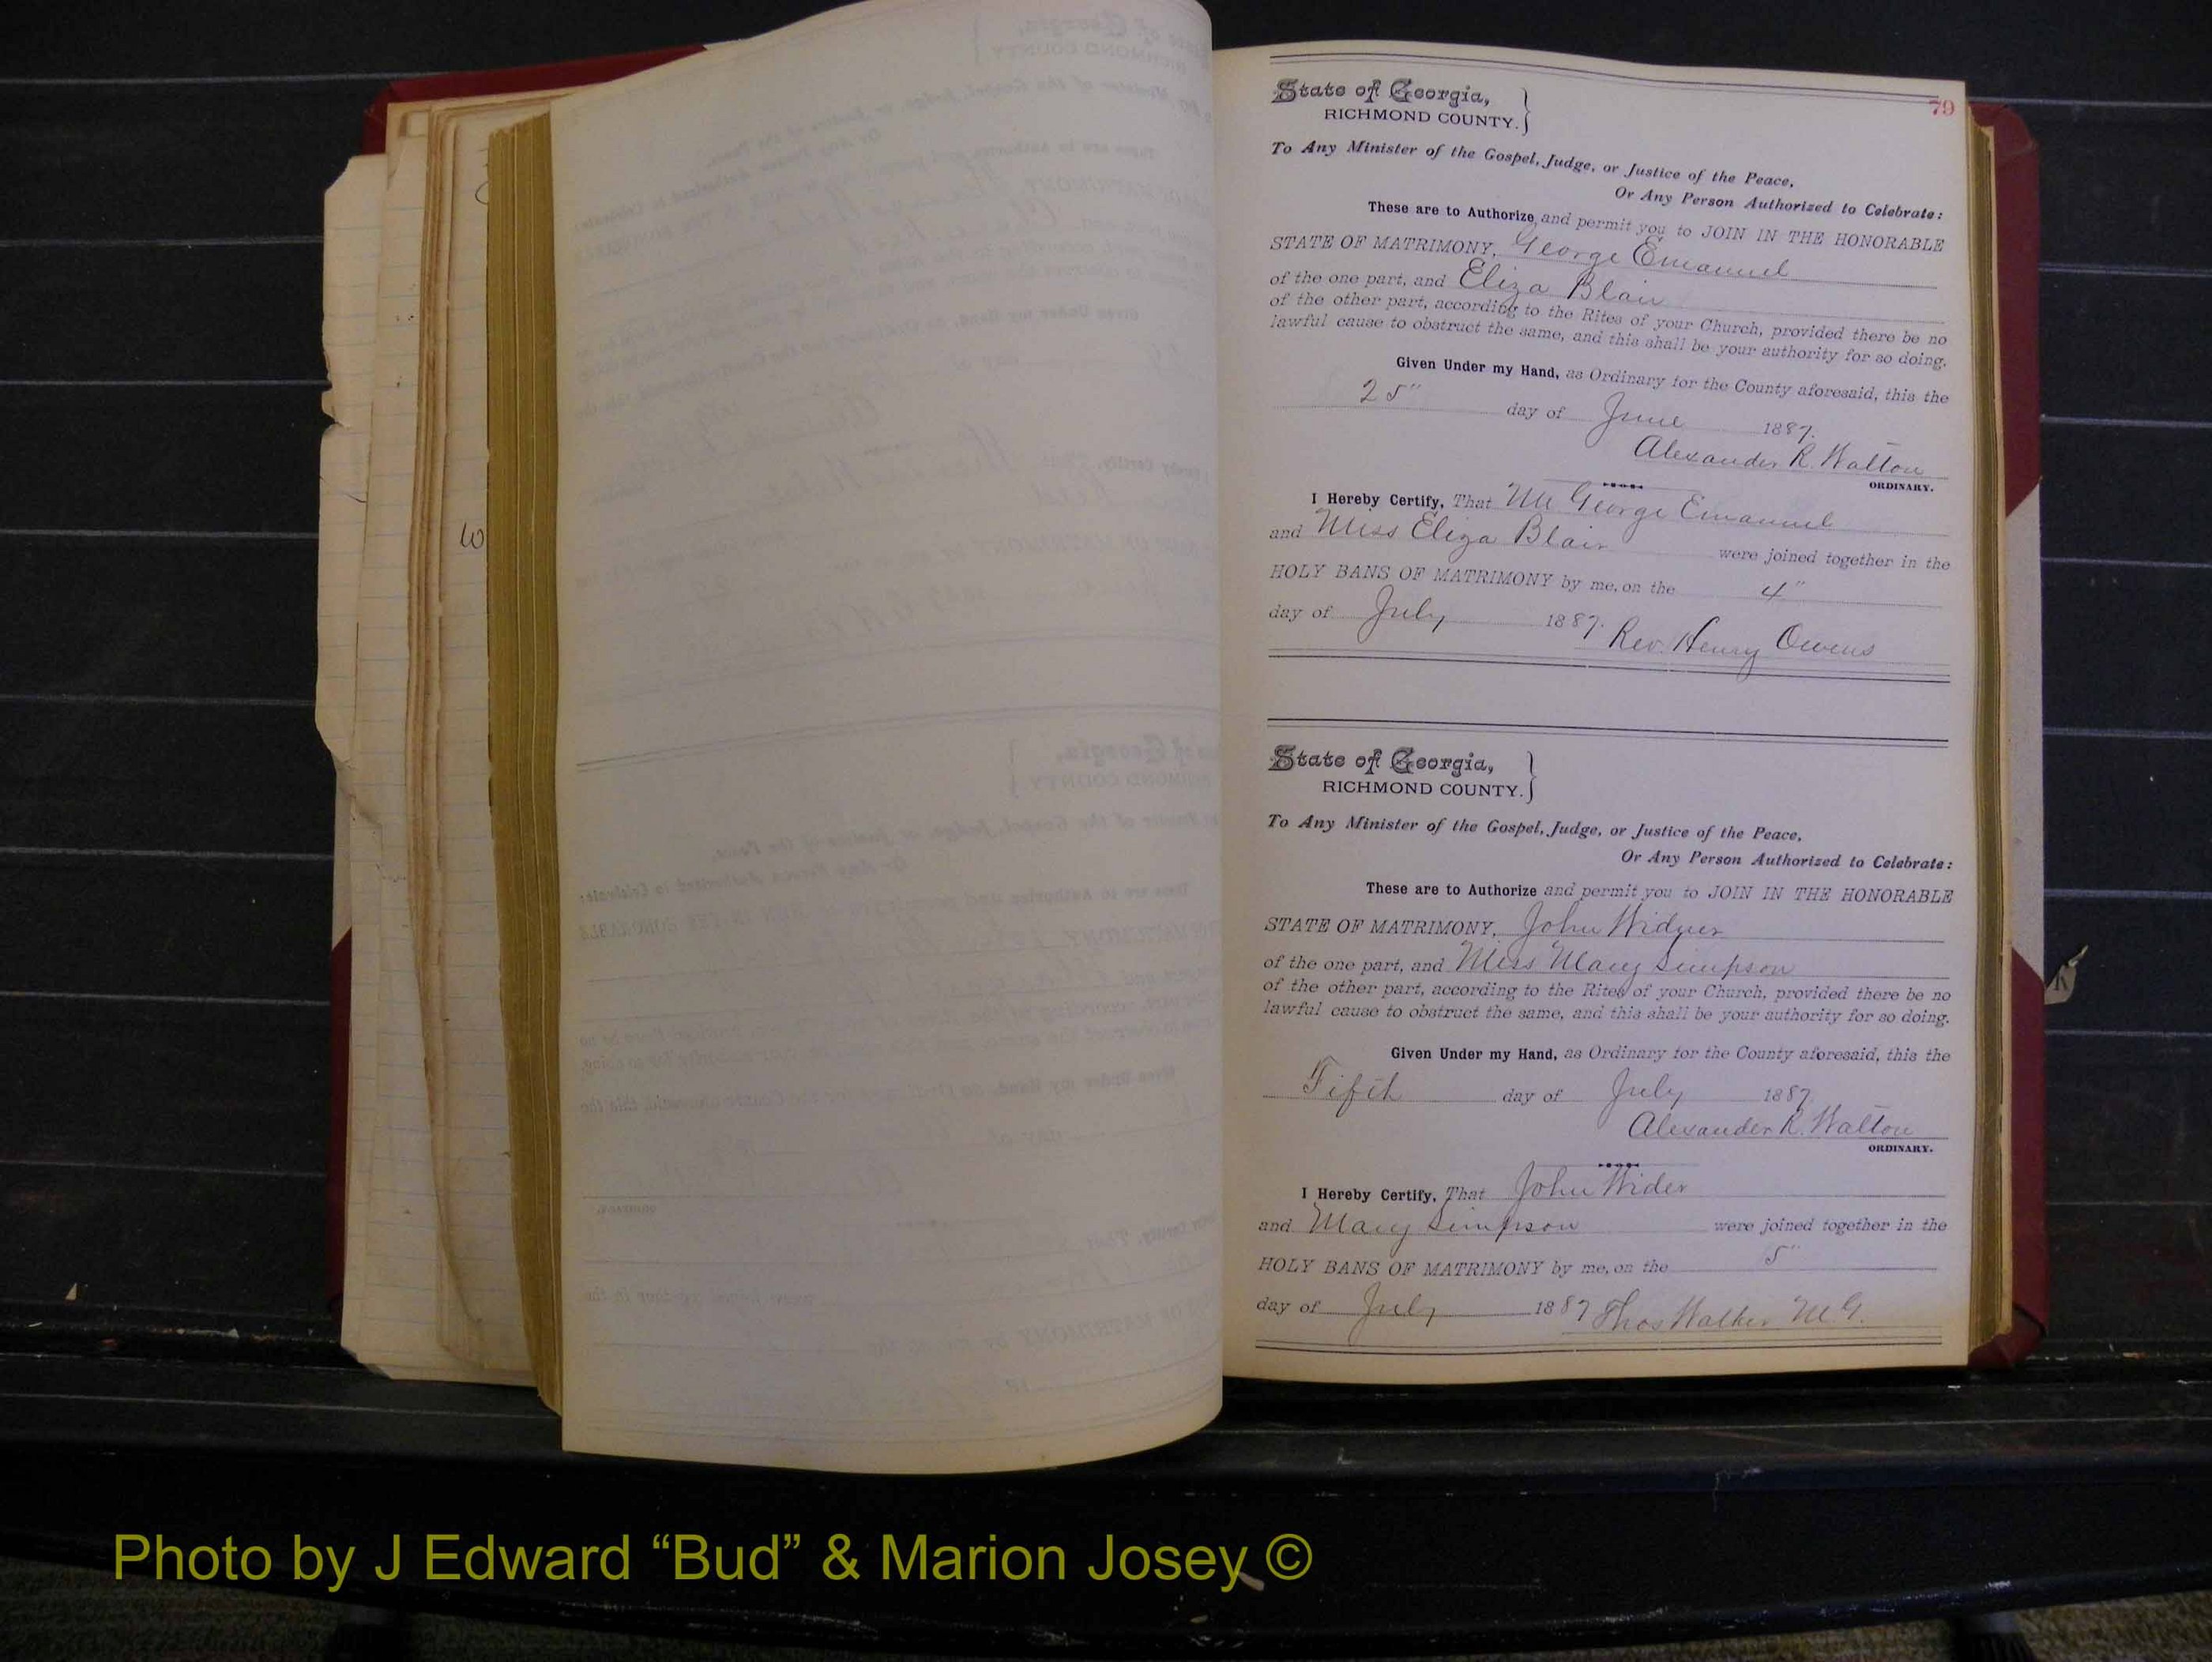 79
State of Georgia,
RICHMOND COUNTY.
To Any Minister of the Gospel, Judge, or Justice of the Peace,
Or Any Person Authorized to Celebrate:
These are to Authorize and permit you to JOIN IN THE HONORABLE
STATE OF MATRIMONY, George Emanuel
of the one part, and Eliza Blair
of the other part, according to the Rites of your Church, provided there be no
lawful cause to obstruct the same, and this shall be your authority for so doing.
Given Under my Hand, as Ordinary for the County aforesaid, this the
25" day of June 1887.
Alexander R. Walton
ORDINARY.
I Hereby Certify, That Mr George Emanuel
and Miss Eliza Blair were joined together in the
HOLY BANS OF MATRIMONY by me, on the 4"
day of July 1887.
Rev. Henry Owens
State of Georgia,
RICHMOND COUNTY.
To Any Minister of the Gospel, Judge, or Justice of the Peace,
Or Any Person Authorized to Celebrate:
These are to Authorize and permit you to JOIN IN THE HONORABLE
STATE OF MATRIMONY, John Widner
of the one part, and Miss Mary Simpson
of the other part, according to the Rites of your Church, provided there be no
lawful cause to obstruct the same, and this shall be your authority for so doing.
Given Under my Hand, as Ordinary for the County aforesaid, this the
Fifth day of July 1887
Alexander R. Walton
ORDINARY.
I Hereby Certify, That John Wider
and Mary Simpson were joined together in the
HOLY BANS OF MATRIMONY by me, on the 5"
day of July 1887 Thos Walker M.G.
Photo by J Edward “Bud” & Marion Josey ©